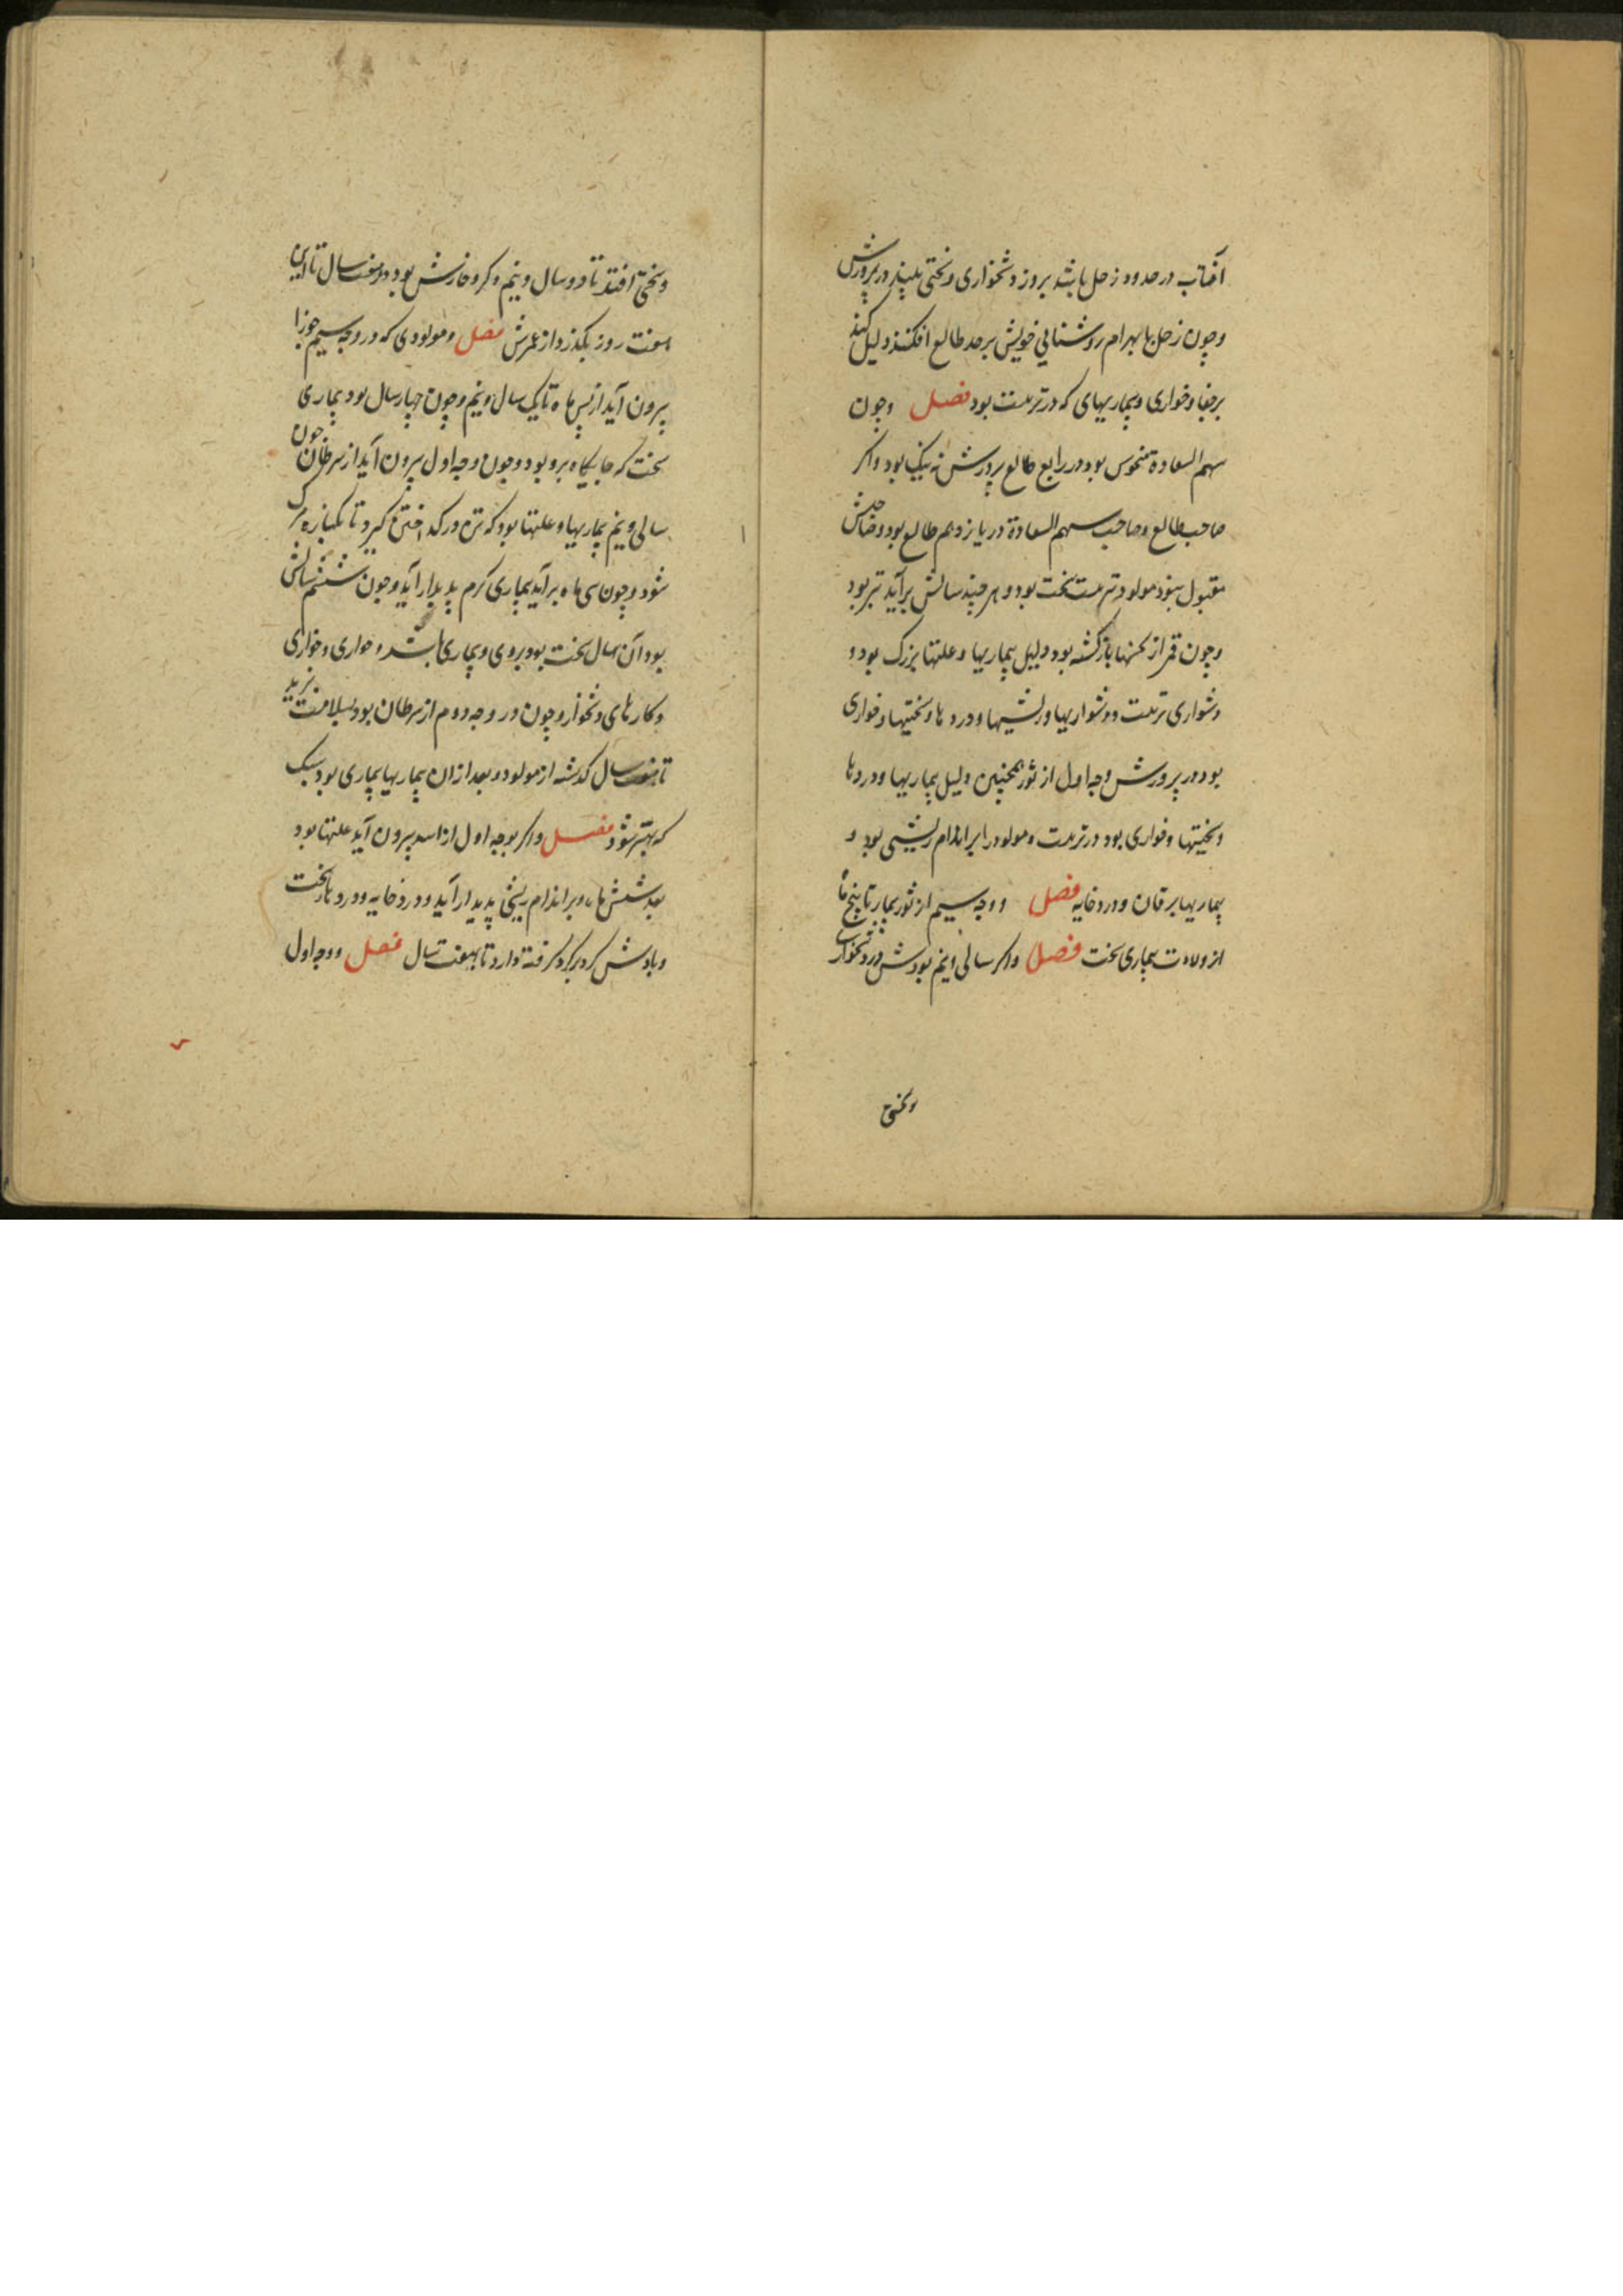 آفتاب در حدود زحل باشد بروز دشخواری و سختی بیند در پرورش
وچون زحل با بهرام روشنایی خویش بر حد طالع افکنند دلیل کند
بر جفا وخواری وبیماریهای که در تربیت بود فصل وچون
سهم السعادة منحوس بود در رابع طالع پرورش نه نیک بود واکر
صاحب طالع وصاحب سهم السعادة در یازدهم طالع بود وصاحبش
مقبول نبود مولود تربیت سخت بود و هر چند سالش برآید بتر بود
وچون قمر از بازکشته بود دلیل بیماریها وعلتها بزرک بود و
دشواری تربیت ودشواریها وریشها ودردها وسختیها وخواری
بود در پرورش وجه اول از ثور همچنین دلیل بیماریها ودردها
وسختیها وخواری بود در تربیت ومولود را بر اندام ریشی بود و
بیماریها یرقان ودرد خایه فصل ووجه سیم از ثور بیمار تا پنج ماه
از ولادت بیماری سخت فصل واکر سالی ونیم بودش درد دشخوار
وسختی
وسختی افتد تا دو سال ونیم وکر وخارش بود در هفت سال تا این
هفت روز بکذرد از عمرش فصل ومولودی که در وجه سیم جوزا
بیرون آید از پس ماه تا یک سال ونیم وچون چهار سال بود بیماری
سخت که جایکاه برو بود وچون وجه اول بیرون آید از سرطان چون
سالی ونیم بیماریها وعلتها بود که تن در کیرد تا مرک
شود وچون سی ماه برآید بیماری کرم پدیدار آید وچون ششم سالش
بود آن سال سخت بود بروی وبیماری باشد وخواری وخواری
وکارهای دشخوار وچون در وجه دوم از سرطان بود بسلامت بزید
تا هفت سال کذشته از مولود وبعد از ان بیماریها بیماری بود سبک
که بهتر شود فصل واکر بوجه اول از اسد بیرون آید علتها بود
بعد شش ماه وبر اندام ریشی پدیدار آید ودرد خایه ودردها سخت
وبادش کرد بر کرد کرفته دارد تا بهفت سال فصل ووجه اول